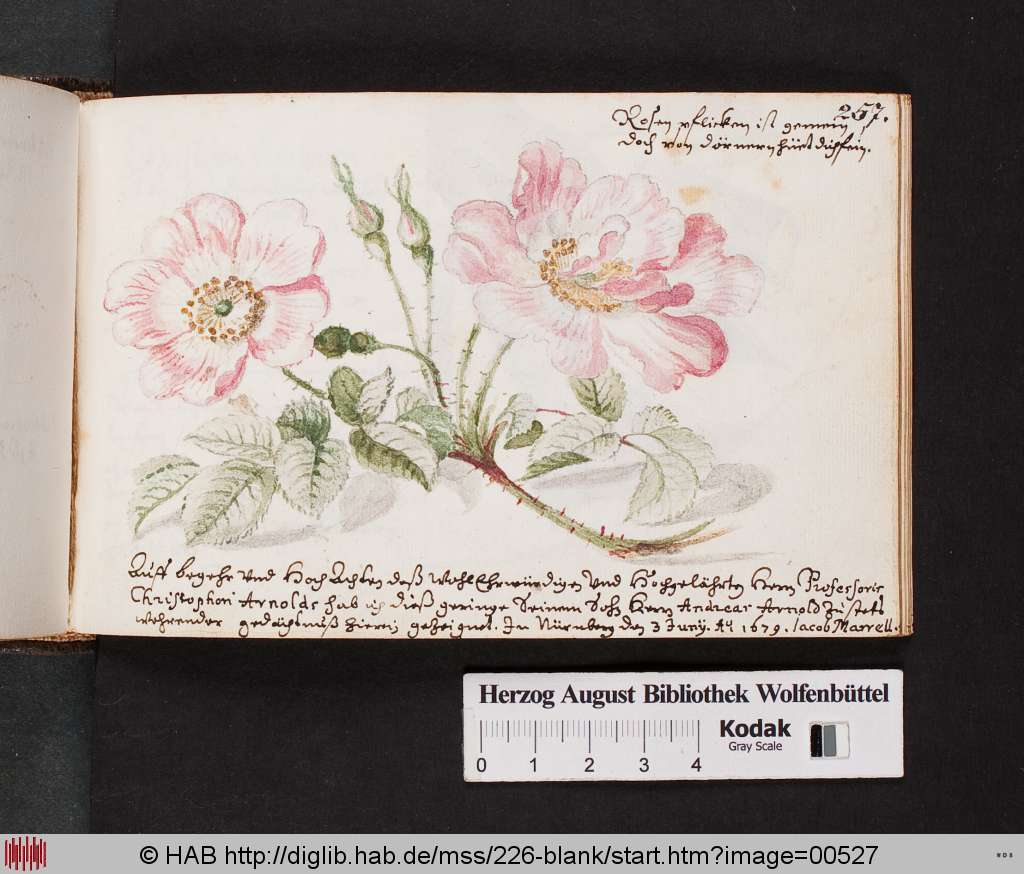 267.
Rosen pflicken ist gemein,
doch von dörnern hüet dich fein.
Auff begehr vnd Hoch Achten daß WohlEhrwürdigen vnd Hochgelährten Herrn Professoris
Christophori Arnolds hab ich dieß geringe Seinem Sohn Herrn Andreas Arnold zu stets
wehrender gedächtnuß hierin gezeignet. In Nürnberg den 3 Juny. A° 1679. Jacob Marrell.
Herzog August Bibliothek Wolfenbüttel
Kodak
Gray Scale
0 1 2 3 4
© HAB http://diglib.hab.de/mss/226-blank/start.htm?image=00527